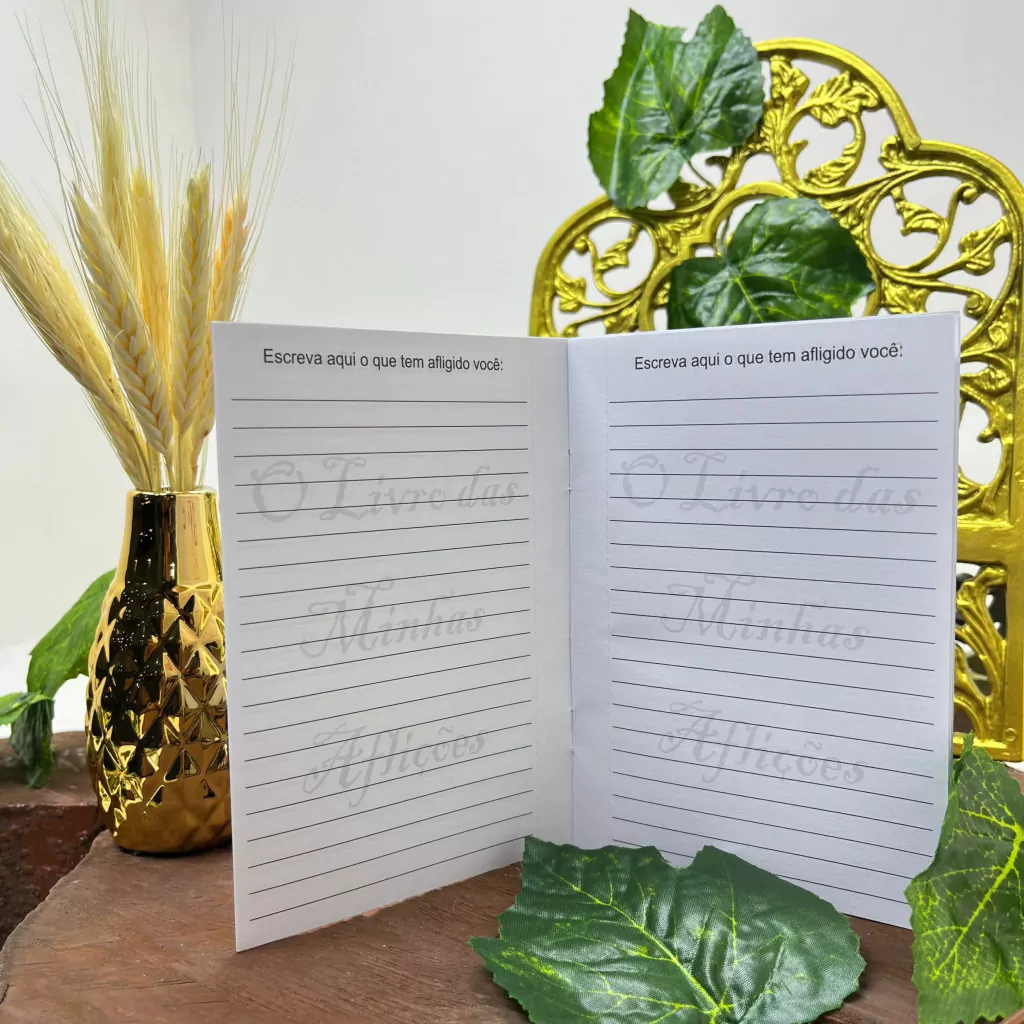 Escreva aqui o que tem afligido você:
O Livro das
Minhas
Aflições
Escreva aqui o que tem afligido você:
O Livro das
Minhas
Aflições